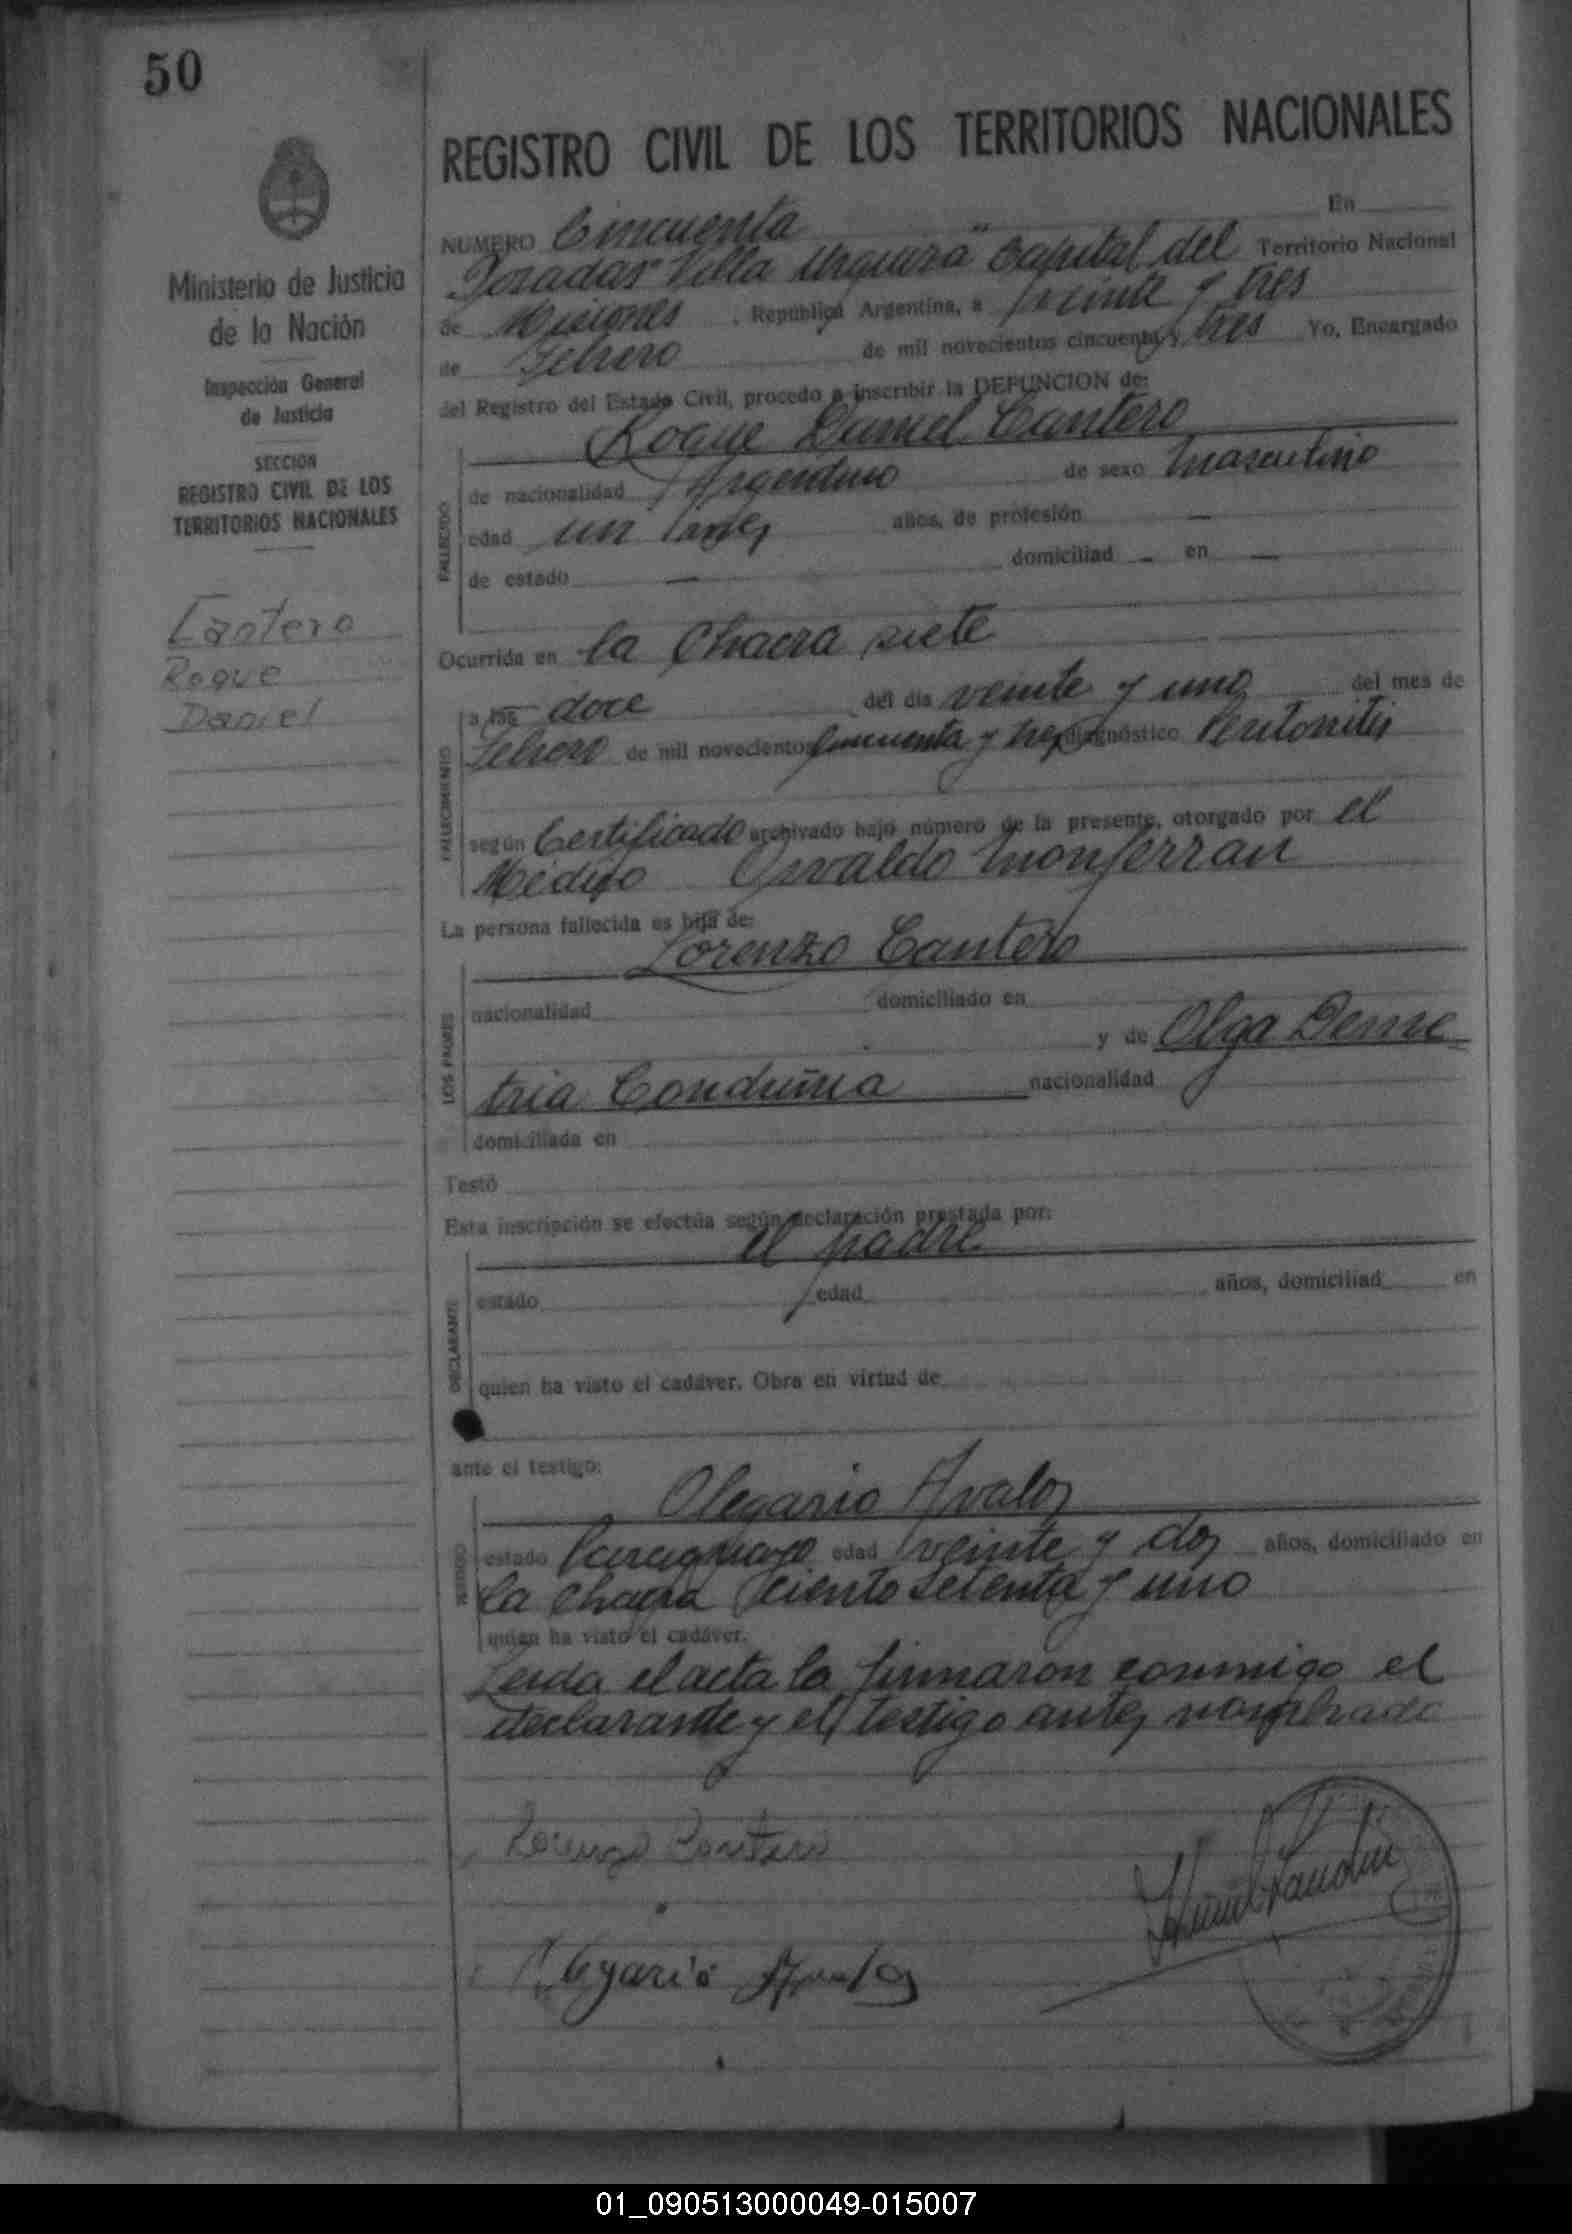 50
REGISTRO CIVIL DE LOS TERRITORIOS NACIONALES
Ministerio de Justicia
de la Nación
Inspección General
de Justicia
SECCION
REGISTRO CIVIL DE LOS
TERRITORIOS NACIONALES
Cantero
Roque
Daniel
NUMERO Cincuenta En
Posadas "Villa Urquiza" Capital del Territorio Nacional
de Misiones, República Argentina, a veinte y tres
de Febrero de mil novecientos cincuenta y tres Yo, Encargado
del Registro del Estado Civil, procedo a inscribir la DEFUNCION de:
Roque Daniel Cantero
FALLECIDO
de nacionalidad Argentino de sexo masculino
edad un años, de profesión —
de estado — domiciliad — en —
Ocurrida en la Chacra siete
FALLECIMIENTO
a las doce del día veinte y uno del mes de
Febrero de mil novecientos cincuenta y tres diagnóstico Peritonitis
según Certificado archivado bajo número de la presente, otorgado por el
Médico Osvaldo Monferran
La persona fallecida es hija de:
Lorenzo Cantero
LOS PADRES
nacionalidad domiciliado en
y de Olga Deme-
tria Conduma nacionalidad
domiciliada en
Testó
Esta inscripción se efectúa según declaración prestada por:
el padre
DECLARANTE
estado edad años, domiciliad en
quien ha visto el cadáver. Obra en virtud de
ante el testigo:
Olegario Avalos
TESTIGO
estado Paraguayo edad veinte y dos años, domiciliado en
la chacra ciento setenta y uno
quien ha visto el cadáver.
Leida el acta la firmaron conmigo el
declarante y el testigo antes nombrado
Lorenzo Cantero
Olegario Avalos
01_090513000049-015007